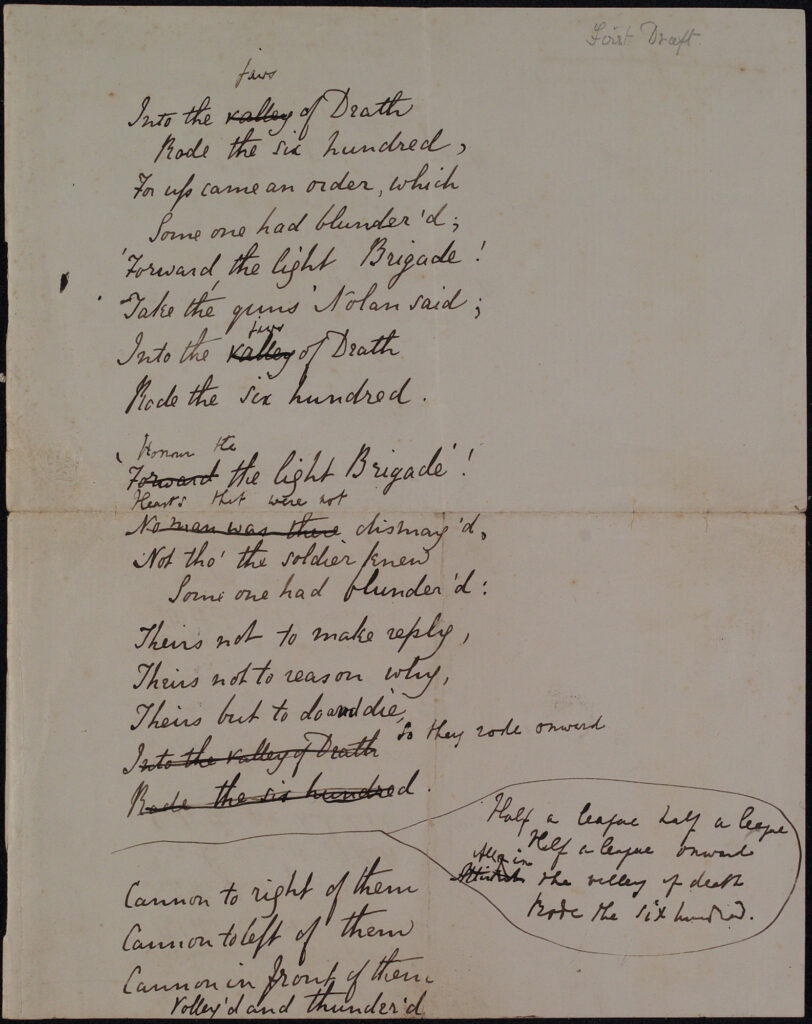 First Draft.
jaws
Into the valley of Death
Rode the six hundred,
For up came an order, which
Some one had blunder'd;
'Forward, the light Brigade!
Take the guns' Nolan said;
jaws
Into the valley of Death
Rode the six hundred.
Honour the
'Forward the light Brigade'!
Hearts that were not
No man was there dismay'd,
Not tho' the soldier knew
Some one had blunder'd:
Theirs not to make reply,
Theirs not to reason why,
Theirs but to do and die,
So they rode onward
Into the valley of Death
Rode the six hundred.
Half a league half a league
Half a league onward
All in
the valley of death
Rode the six hundred.
Cannon to right of them
Cannon to left of them
Cannon in front of them
Volley'd and thunder'd